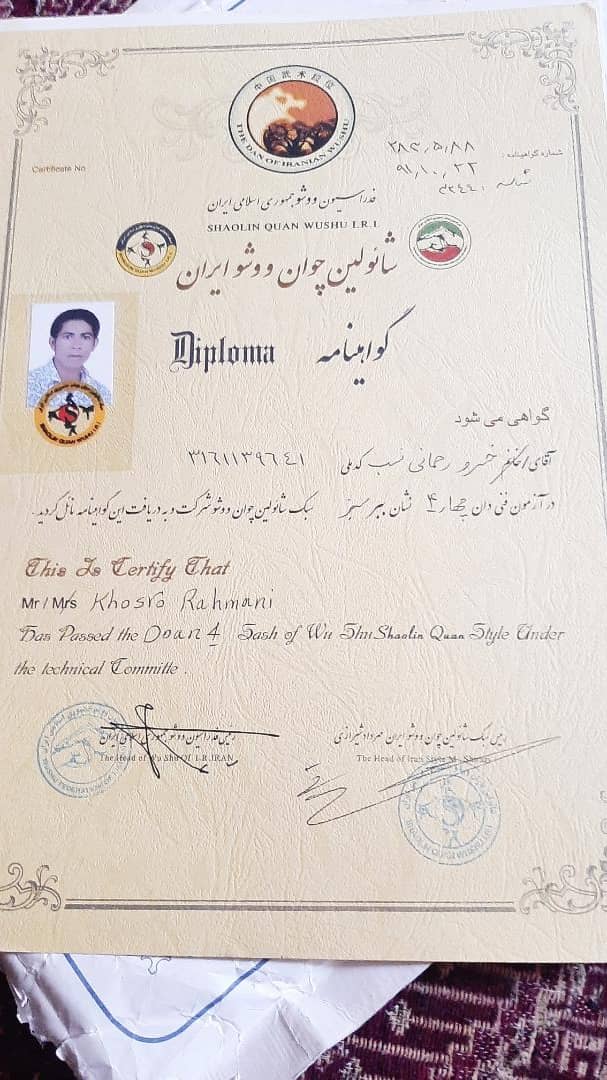 中国武术段位
THE DAN OF IRANIAN WUSHU
Certificate No
شماره گواهینامه: ۳۸۳,۵,۸۸
۹۱,۱۰,۲۲
شناسه
فدراسیون ووشو جمهوری اسلامی ایران
SHAOLIN QUAN WUSHU I.R.I.
شائولین چوان ووشو ایران
Diploma گواهینامه
گواهی می شود
آقای/خانم خسرو رحمانی نسب کدملی ۳۱۶۱۱۳۹۶۴۱
در آزمون فنی دان چهار ۴ نشان ببر سبز سبک شائولین چوان ووشو شرکت و به دریافت این گواهینامه نائل گردید.
This Is Certify That
Mr / Mrs Khosro Rahmani
Has Passed the Doan 4 Sash of Wu Shu Shaolin Quan Style Under
the technical Committe .
رئیس فدراسیون ووشو جمهوری اسلامی ایران
The Head of Wu Shu Of I.R.IRAN
رئیس سبک شائولین چوان ووشو ایران مهرداد شیرازی
The Head of Iran Style M. Shirazi
SHAOLIN QUAN WUSHU I.R.I